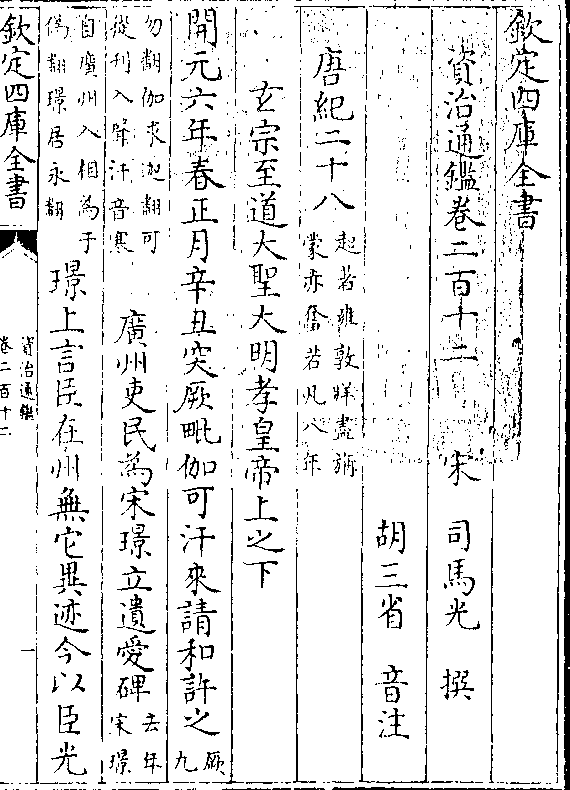 欽定四庫全書
資治通鑑卷二百十二 宋 司馬光 撰
胡三省 音注
唐紀二十八
起著雍敦牂盡旃
蒙赤奮若凡八年
玄宗至道大聖大明孝皇帝上之下
開元六年春正月辛丑突厥毗伽可汗來請和許之
厥
九
勿翻伽求迦翻可
從刋入聲汗音寒
廣州吏民為宋璟立遺愛碑
去年
宋璟
自廣州入相為于
偽翻璟居永翻
璟上言臣在州無它異迹今以臣光
欽定四庫全書
資治通鑑
卷二百十二
一